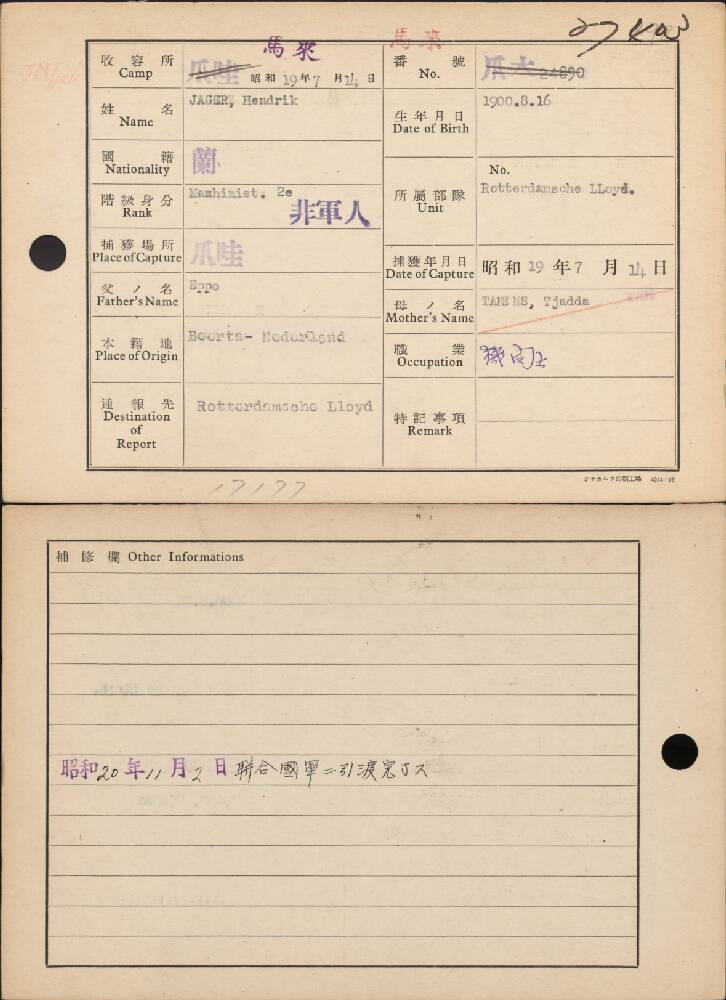 馬來 馬來
收容所 Camp 爪哇 昭和19年7月14日
番號 No. 爪六 24890
姓名 Name JAGER, Hendrik
生年月日 Date of Birth 1900.8.16
國籍 Nationality 蘭
階級身分 Rank Mashinist. 2e 非軍人
所屬部隊 Unit No. Rotterdamsche LLoyd.
捕獲場所 Place of Capture 爪哇
捕獲年月日 Date of Capture 昭和19年7月14日
父ノ名 Father's Name Eppo
母ノ名 Mother's Name Tjadda
本籍地 Place of Origin Beerta- Nederland
職業 Occupation
通報先 Destination of Report Rotterdamsche Lloyd
特記事項 Remark
17177
補修欄 Other Informations
昭和20年11月2日聯合國軍ニ引渡完了ス